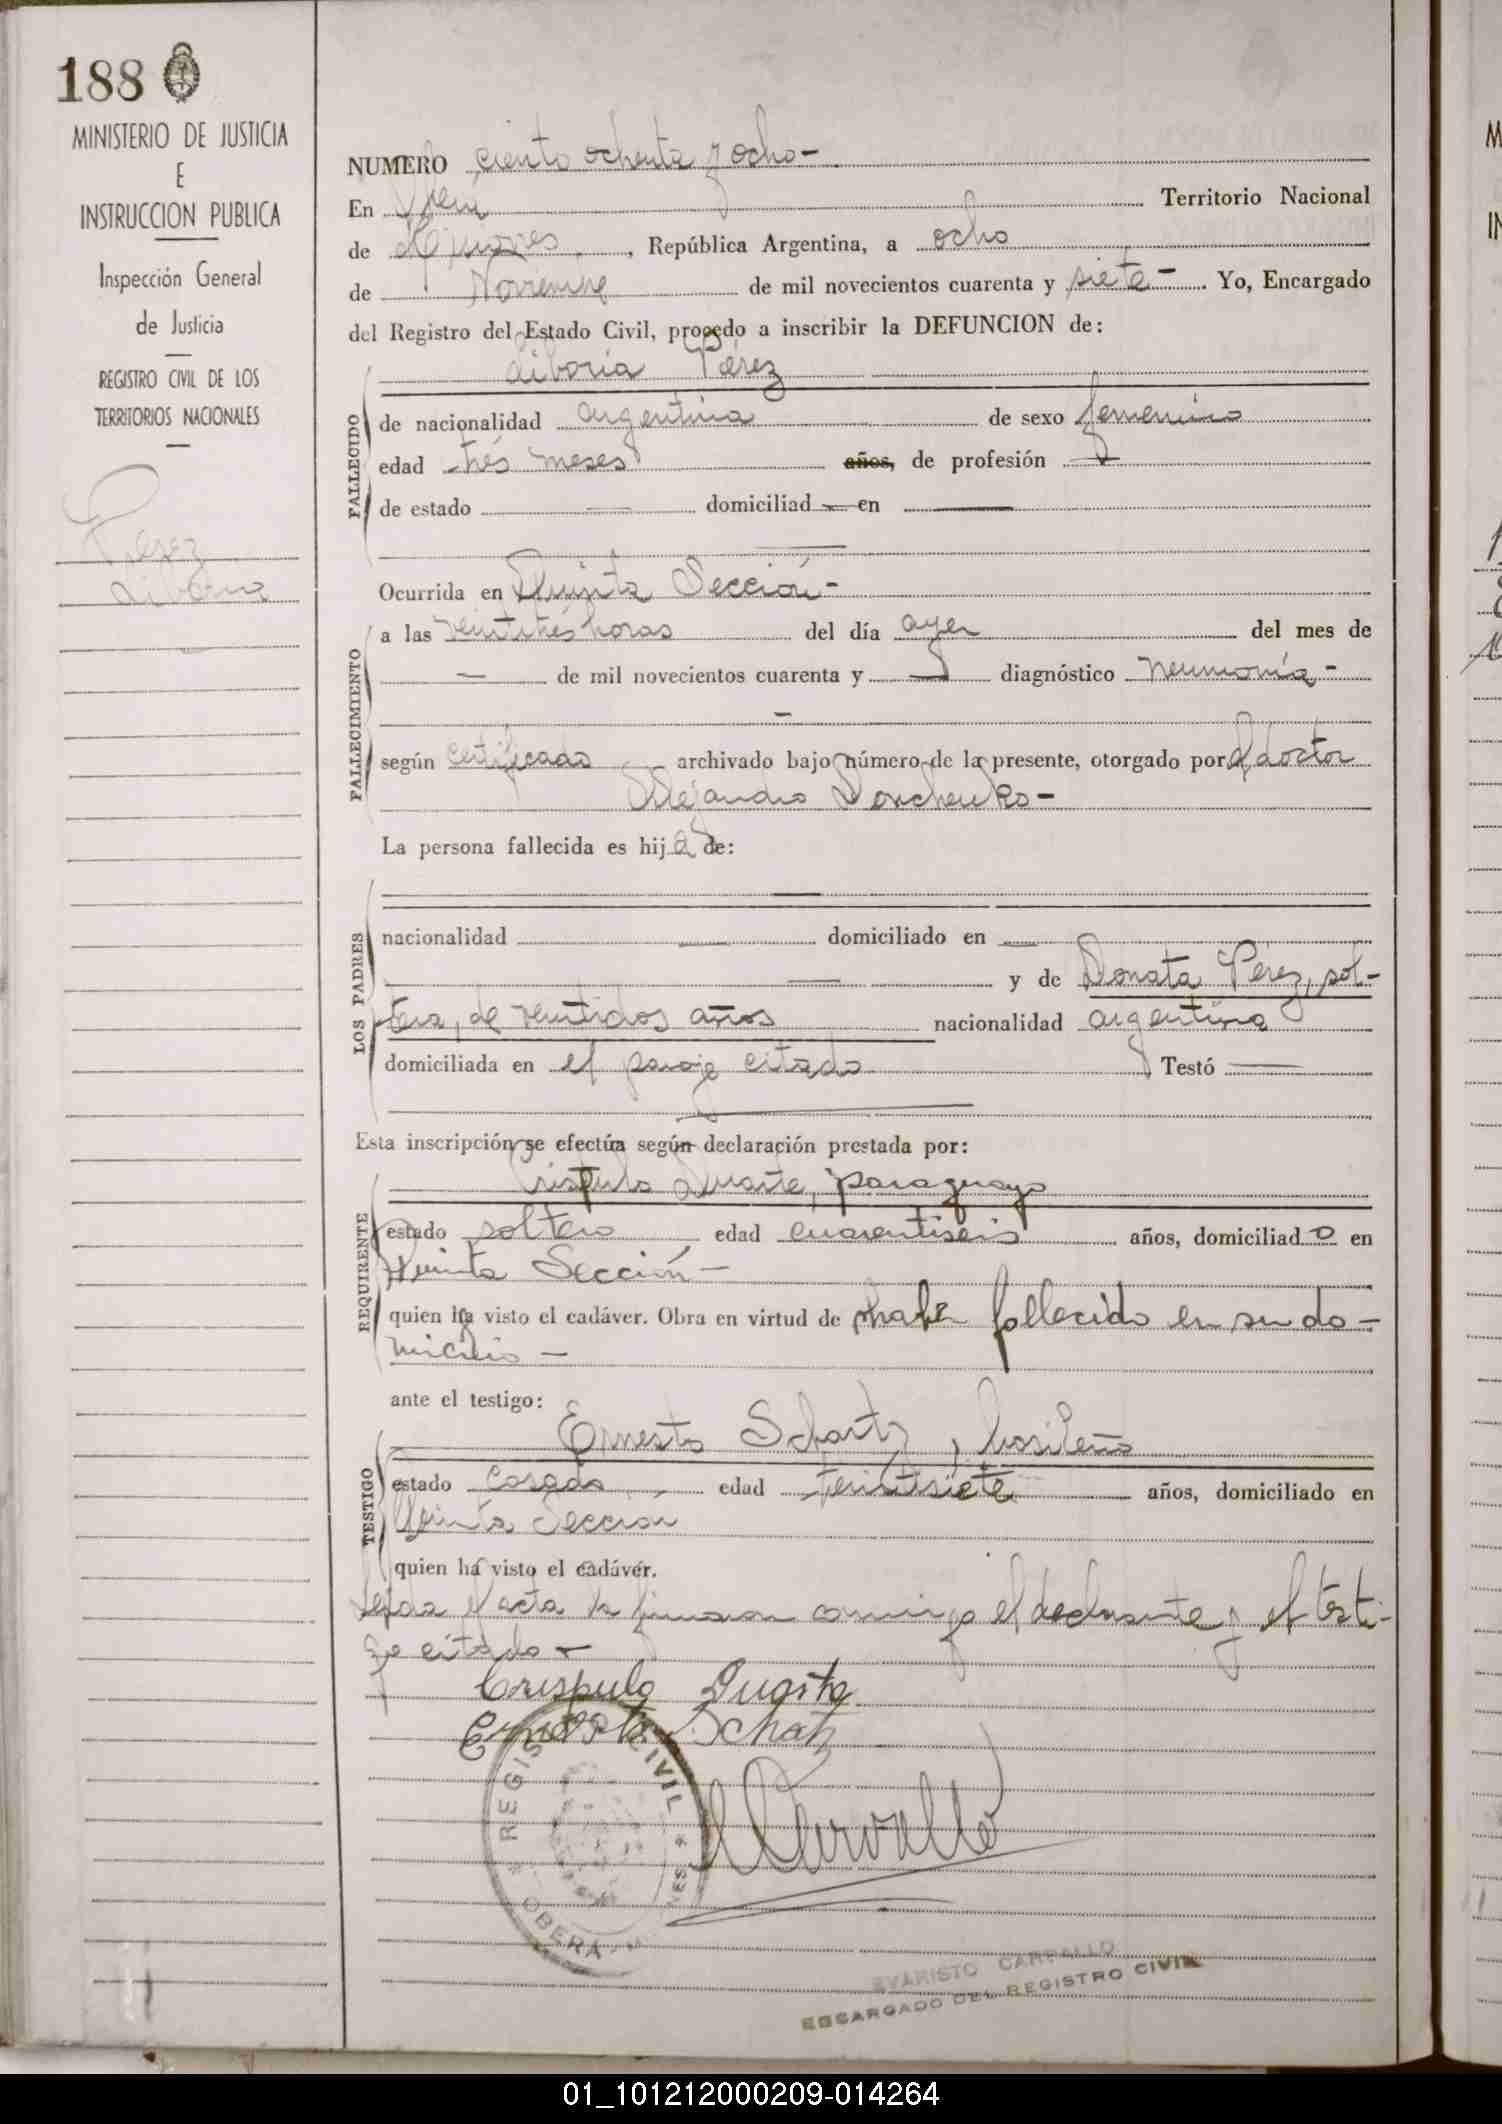 188
MINISTERIO DE JUSTICIA
E
INSTRUCCION PUBLICA
Inspección General
de Justicia
REGISTRO CIVIL DE LOS
TERRITORIOS NACIONALES
Pérez
Liboria
NUMERO ciento ochenta y ocho-
En Territorio Nacional
de Misiones, República Argentina, a ocho
de Noviembre de mil novecientos cuarenta y siete-. Yo, Encargado
del Registro del Estado Civil, procedo a inscribir la DEFUNCION de:
Liboria Pérez
FALLECIDO
de nacionalidad argentina de sexo femenino
edad trés meses años, de profesión —
de estado — domiciliad — en —
Ocurrida en Quinta Sección-
FALLECIMIENTO
a las veintitrés horas del día ayer del mes de
— de mil novecientos cuarenta y — diagnóstico neumonía-
según certificado archivado bajo número de la presente, otorgado por el doctor
Alejandro
La persona fallecida es hij a de:
LOS PADRES
nacionalidad — domiciliado en —
— y de Donata Pérez, sol-
tera, de veintidos años nacionalidad argentina
domiciliada en el paraje citado Testó —
Esta inscripción se efectúa según declaración prestada por:
REQUIRENTE
Crispulo Duarte, paraguayo
estado soltero edad cuarentiseis años, domiciliad o en
Quinta Sección-
quien ha visto el cadáver. Obra en virtud de haber fallecido en su do-
micilio-
ante el testigo:
TESTIGO
Ernesto Schartz, brasileño
estado casado, edad treintisiete años, domiciliado en
Quinta Sección
quien ha visto el cadáver.
Leída el acta la firmaron conmigo el declarante y el testi-
go citado-
Crispulo Duarte
Ernesto Schatz
REGISTRO CIVIL
OBERÁ
E Carvallo
EVARISTO CARVALLO
ENCARGADO DEL REGISTRO CIVIL
01_101212000209-014264